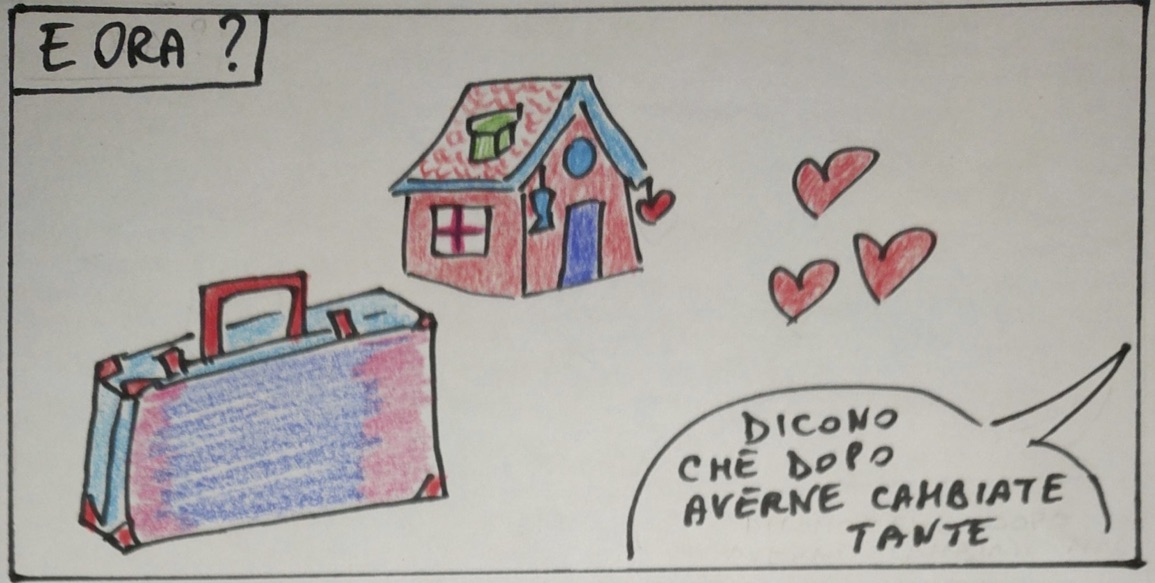 E ORA ?
DICONO
CHE DOPO
AVERNE CAMBIATE
TANTE